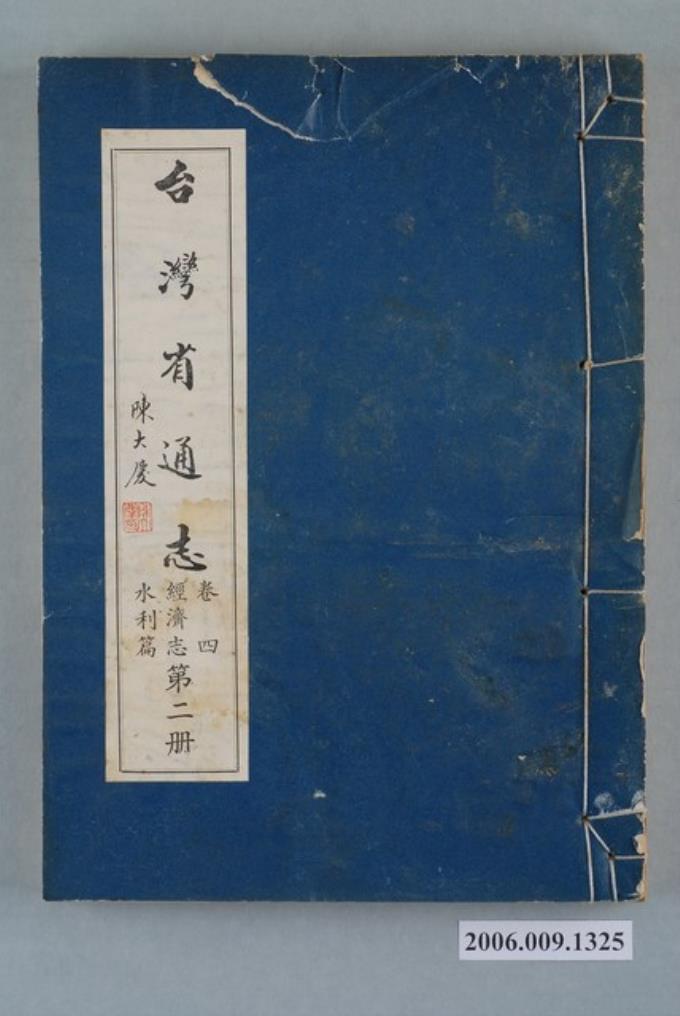 台灣省通志
卷四
經濟志
水利篇
第二册
陳大慶
2006.009.1325